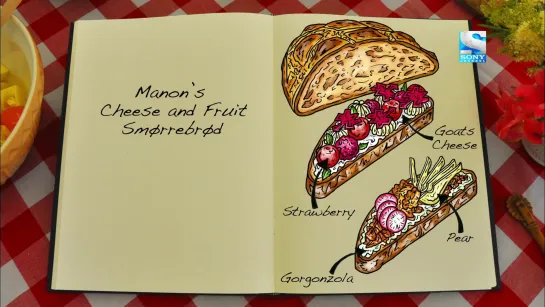 Manon's
Cheese and Fruit
Smørrebrød
SONY
Goats
Cheese
Strawberry
Pear
Gorgonzola